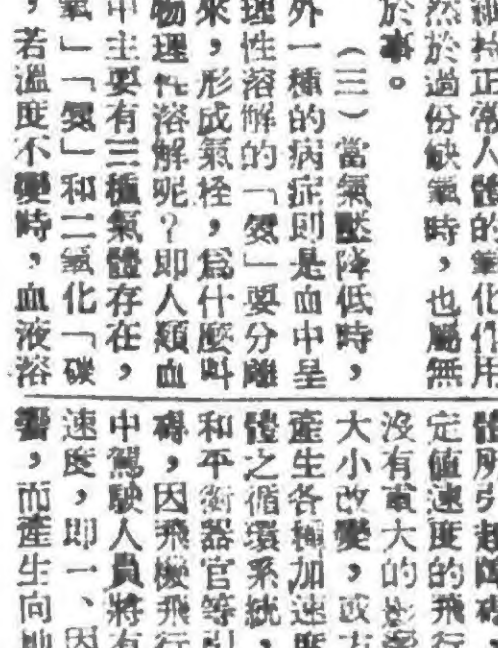 持正常人體的氧化作用
然於過份缺氧時，也屬無
於事。
（三）當氣壓降低時，
外一種的病症即是血中呈
理性溶解的「氮」要分離
來，形成氣栓，爲什麼叫
物理性溶解呢？即人類血
中主要有三種氣體存在，
氧」「氮」和二氧化「碳
，若溫度不變時，血液溶
體所引起障礙，
定值速度的飛行
沒有重大的影響
大小改變，或方
產生各種加速度
體之循環系統，
和平衡器官等引
礙，因飛機飛行
中駕駛人員將有
速度，即一、因
響，而產生向地